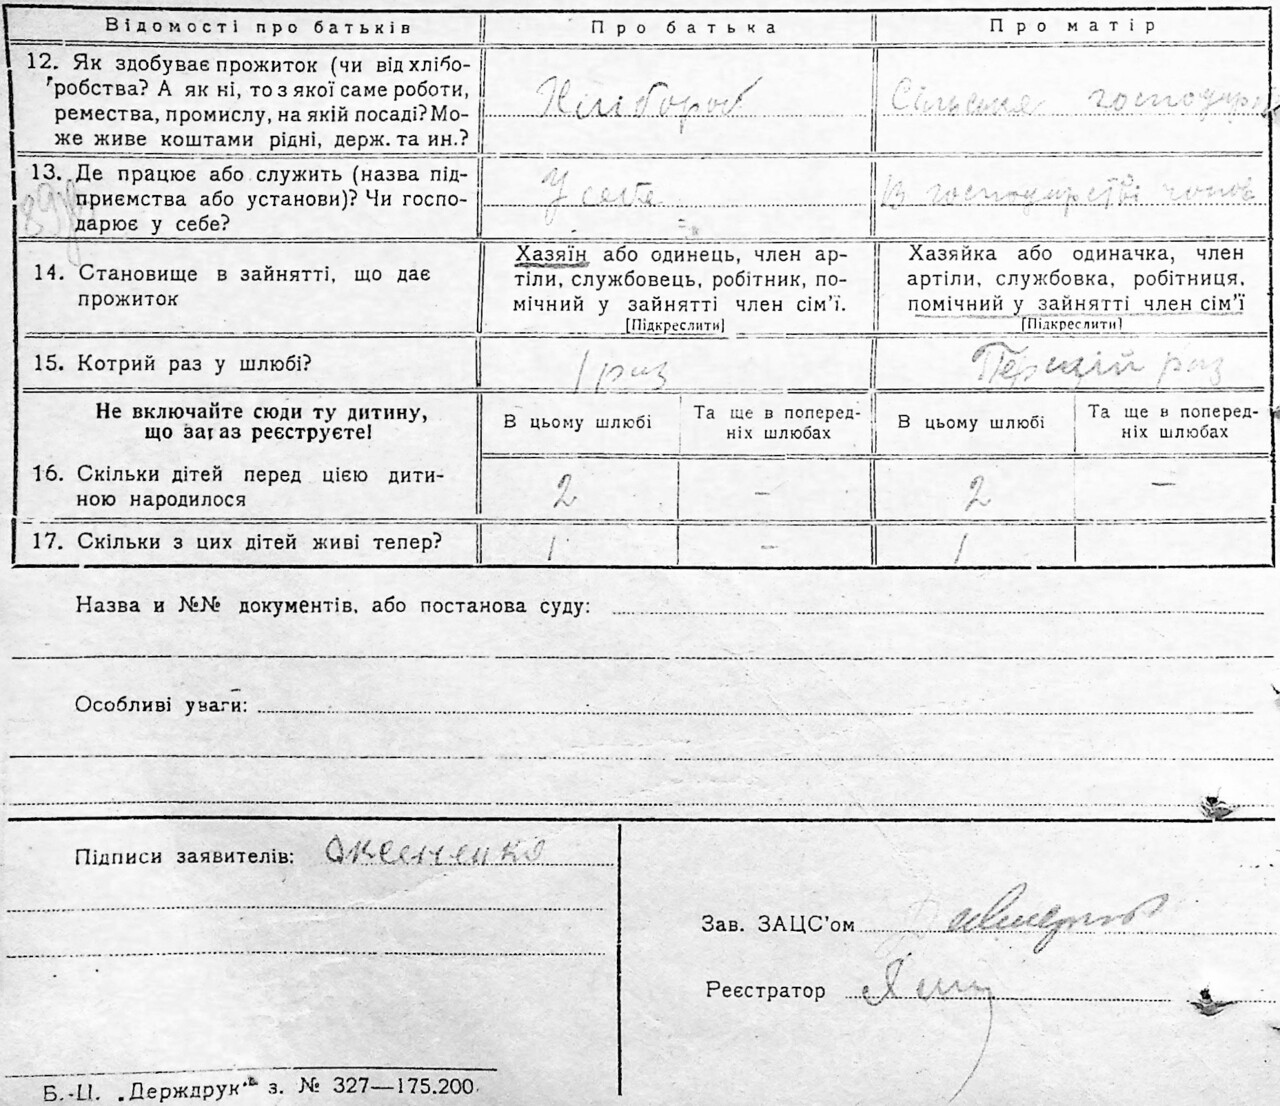 Відомості про батьків Про батька Про матір
12. Як здобуває прожиток (чи від хлібо-
робства? А як ні, то з якої саме роботи,
ремества, промислу, на якій посаді? Мо-
же живе коштами рідні, держ. та ин.?
Хлібороб
Сільське господар
13. Де працює або служить (назва під-
приємства або установи)? Чи госпо-
дарює у себе?
У себе
В господарстві чолов
14. Становище в зайнятті, що дає
прожиток
Хазяїн або одинець, член ар-
тіли, службовець, робітник, по-
мічний у зайнятті член сім'ї.
[Підкреслити]
Хазяйка або одиначка, член
артіли, службовка, робітниця,
помічний у зайнятті член сім'ї
[Підкреслити]
15. Котрий раз у шлюбі?
1 раз
Перший раз
Не включайте сюди ту дитину,
що зараз реєструєте!
В цьому шлюбі
Та ще в поперед-
ніх шлюбах
В цьому шлюбі
Та ще в поперед-
ніх шлюбах
16. Скільки дітей перед цією дити-
ною народилося
2 – 2 –
17. Скільки з цих дітей живі тепер?
1 – 1
Назва и №№ документів, або постанова суду:
Особливі уваги:
Підписи заявителів:
Зав. ЗАЦС'ом
Реєстратор
Б.-Ц. „Держдрук" з. № 327—175.200.